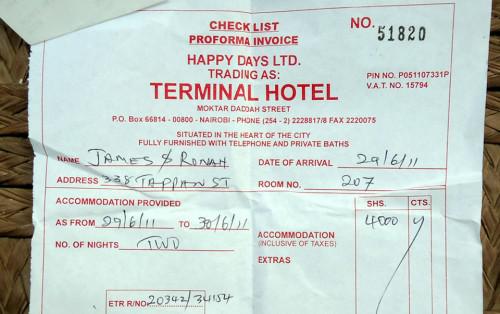 CHECK LIST
PROFORMA INVOICE
NO. 51820
HAPPY DAYS LTD.
TRADING AS:
TERMINAL HOTEL
PIN NO. P051107331P
V.A.T. NO. 15794
MOKTAR DADDAH STREET
P.O. Box 66814 - 00800 - NAIROBI - PHONE (254 - 2) 2228817/8 FAX 2220075
SITUATED IN THE HEART OF THE CITY
FULLY FURNISHED WITH TELEPHONE AND PRIVATE BATHS
NAME JAMES & RONAH DATE OF ARRIVAL 29/6/11
ADDRESS 338 TAPPAN ST ROOM NO. 207
ACCOMMODATION PROVIDED
AS FROM 29/6/11 TO 30/6/11
NO. OF NIGHTS TWO
SHS. CTS.
ACCOMMODATION 4000
(INCLUSIVE OF TAXES)
EXTRAS
ETR R/NO 20342/34154